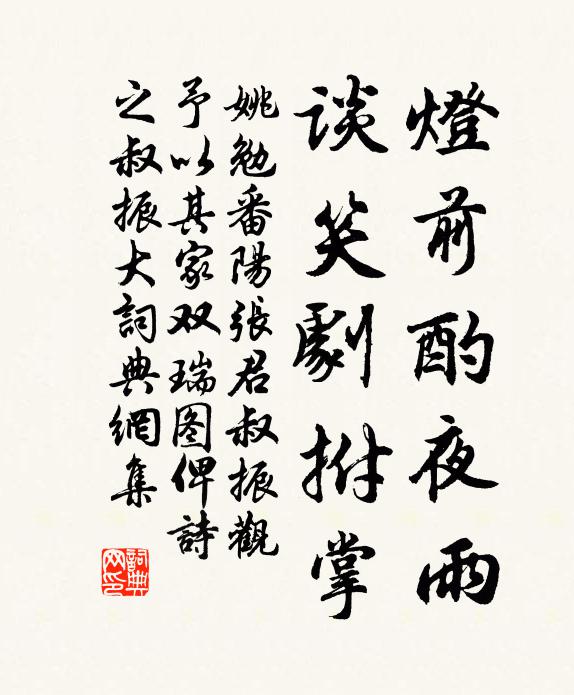 燈前酌夜雨
談笑劇拊掌
姚勉番陽張君叔振觀
予以其家双瑞图俾詩
之叔振大詞典網集
詞典網印